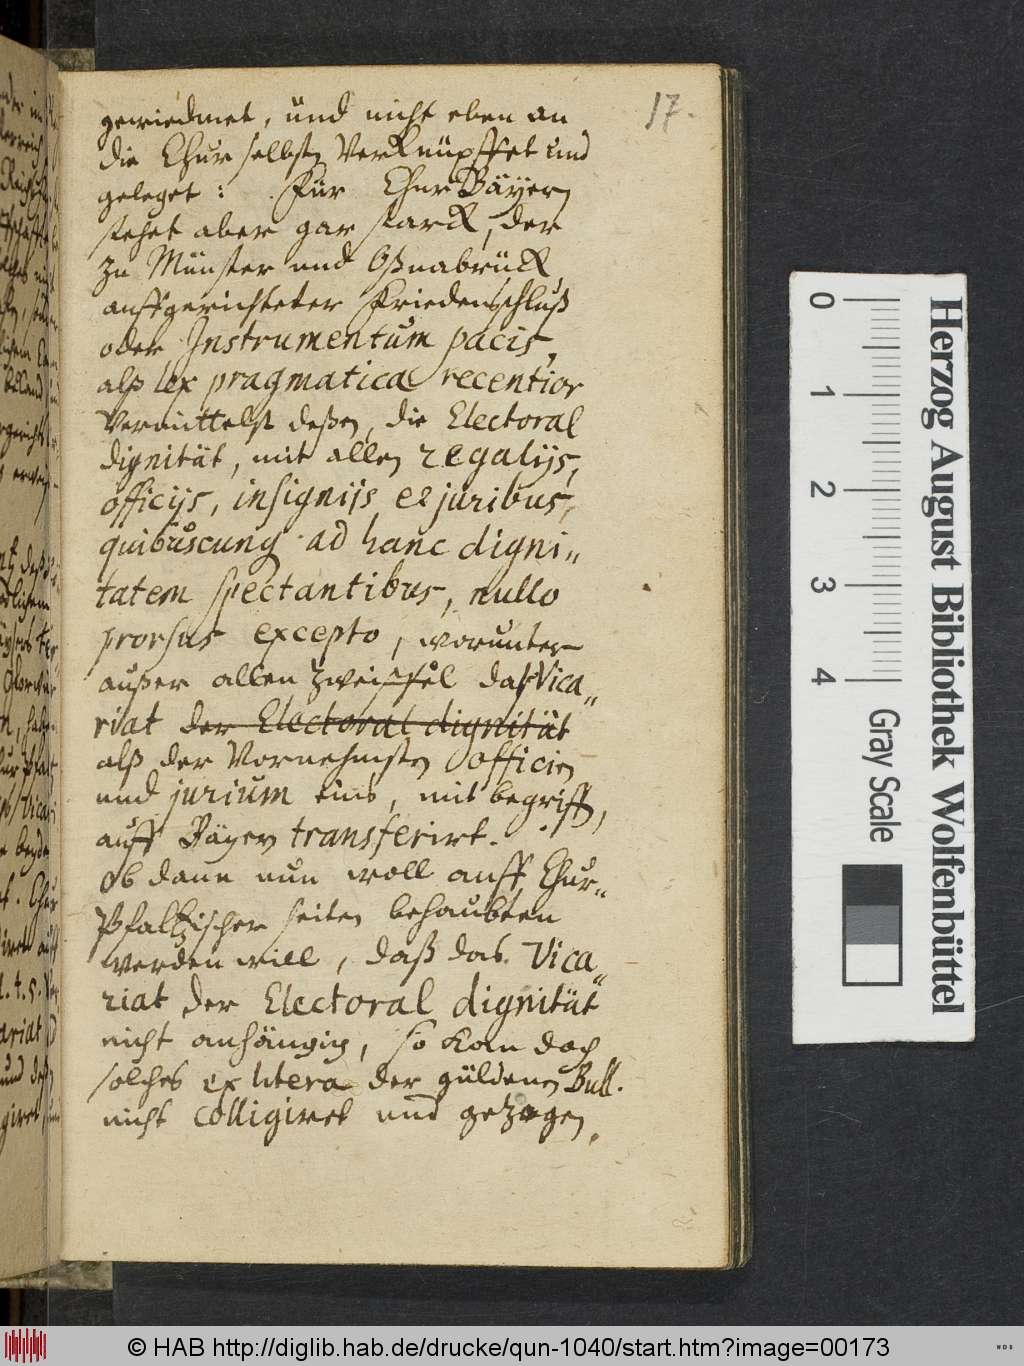 17.
gewiedmet, und nicht eben an
die Chur selbsten Verknüpffet und
geleget: Für Chur Bäÿern
stehet aber gar starck, der
zu Münster und Oßnabrück,
auffgerichteter Friedensschluß
oder Instrumentum pacis,
alß lex pragmatica recentior
Vermittelst deßen, die Electoral
dignität, mit allen regalijs,
officijs, insignijs et juribus,
quibuscunq ad hanc digni„
tatem spectantibus, nullo
prorsus excepto, worunter
außer allen zweiffel daß Vica„
riat der Electoral dignität
alß der Vornehmsten officien
und jurium eins, mit begriffen,
auff Bäyern transferirt.
Ob dann nun woll auff Chur„
Pfaltzischer seiten behaubten
werden will, daß das Vica„
riat der Electoral dignität
nicht anhängig, so kan doch
solches ex litera der güldenen Bull.
nicht colligiret und gezogen,
Herzog August Bibliothek Wolfenbüttel
0 1 2 3 4
Gray Scale
© HAB http://diglib.hab.de/drucke/qun-1040/start.htm?image=00173